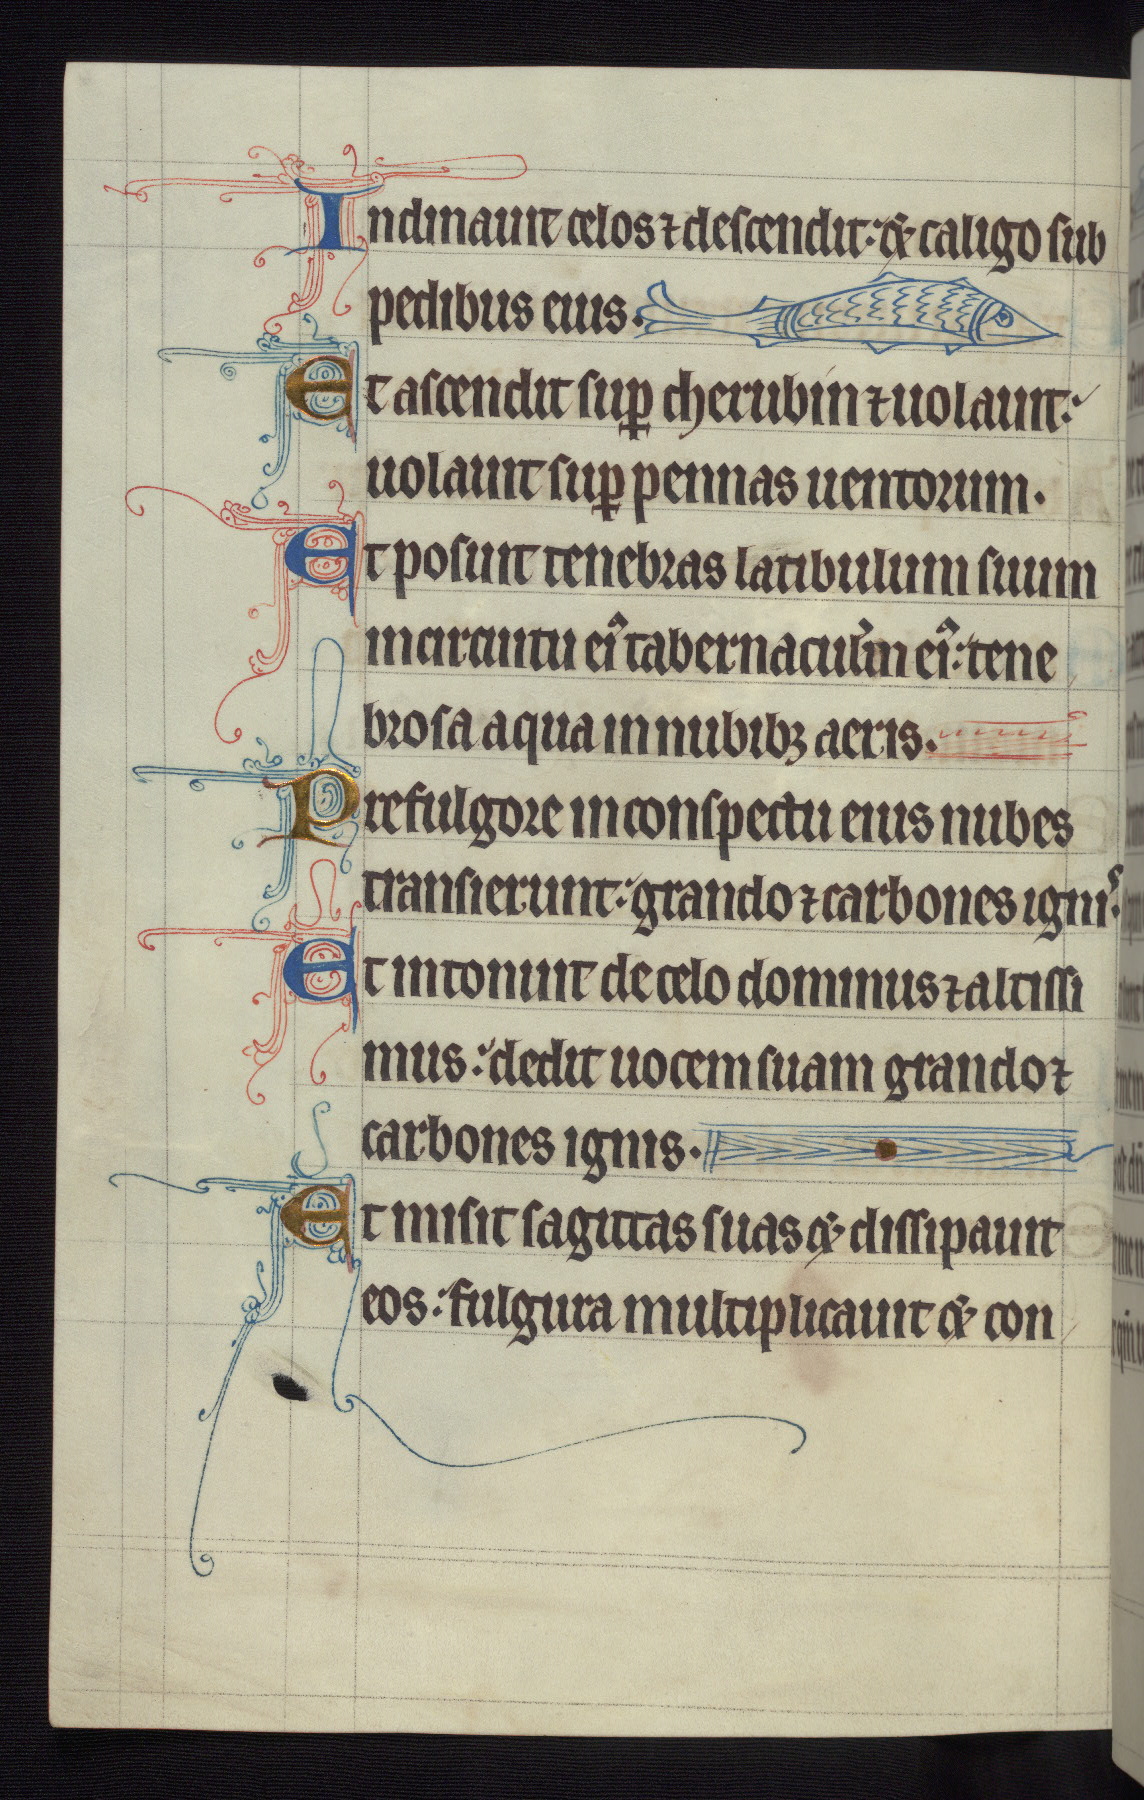 Inclinauit celos ⁊ descendit: & caligo sub
pedibus eius.
Et ascendit suꝑ cherubin ⁊ uolauit:
uolauit suꝑ pennas uentorum.
Et posuit tenebras latibulum suum
in circuitu ei᷒ tabernaculu̅m ei᷒: tene
brosa aqua in nubibꝫ aeris.
Pre fulgore in conspectu eius nubes
transierunt: grando ⁊ carbones igniˢ.
Et intonuit de celo dominus ⁊ altissi
mus: dedit uocem suam grando ⁊
carbones ignis.
Et misit sagittas suas & dissipauit
eos: fulgura multiplicauit & con